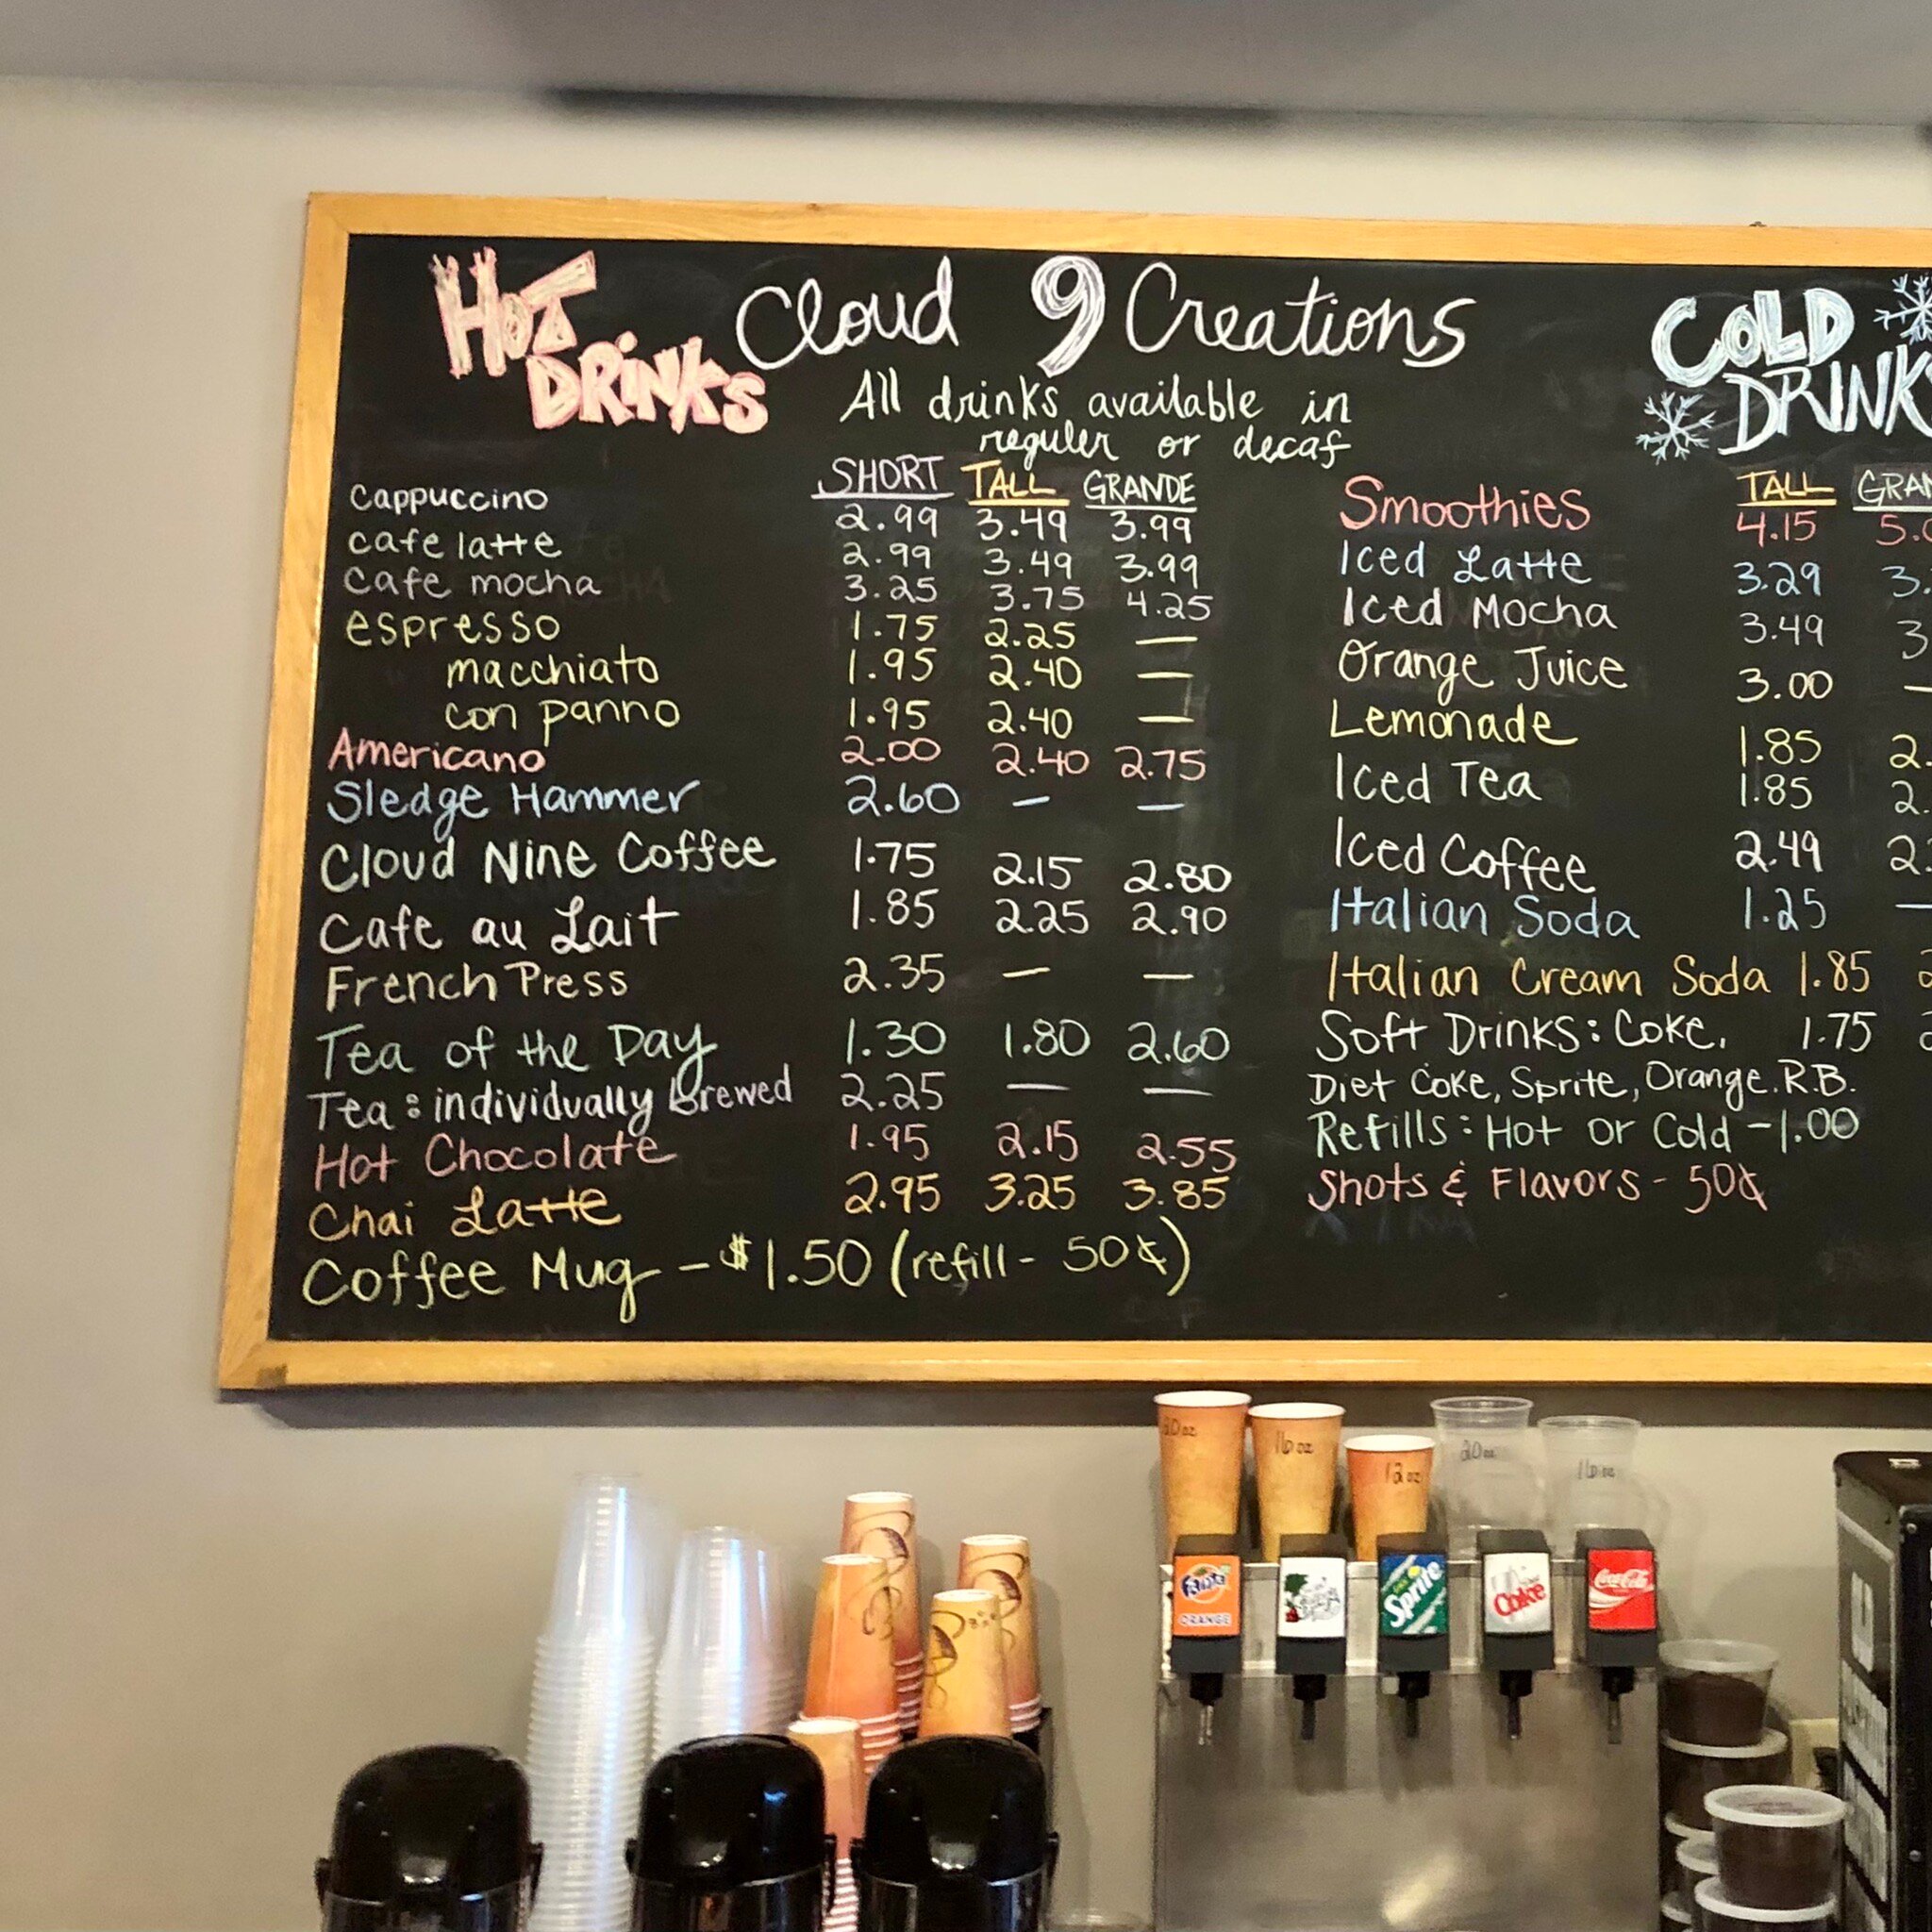 Hot Drinks
Cloud 9 Creations
All drinks available in
reguler or decaf
SHORT TALL GRANDE
cappuccino 2.99 3.49 3.99
cafe latte 2.99 3.49 3.99
cafe mocha 3.25 3.75 4.25
espresso 1.75 2.25 —
macchiato 1.95 2.40 —
con panno 1.95 2.40 —
Americano 2.00 2.40 2.75
Sledge Hammer 2.60 — —
Cloud Nine Coffee 1.75 2.15 2.80
Cafe au Lait 1.85 2.25 2.90
French Press 2.35 — —
Tea of the Day 1.30 1.80 2.60
Tea: individually Brewed 2.25 — —
Hot Chocolate 1.95 2.15 2.55
Chai Latte 2.95 3.25 3.85
Coffee Mug - $1.50 (refill - 50¢)
COLD
DRINKS
TALL
Smoothies 4.15
Iced Latte 3.29
Iced Mocha 3.49
Orange Juice 3.00 —
Lemonade 1.85
Iced Tea 1.85
Iced Coffee 2.49
Italian Soda 1.25 —
Italian Cream Soda 1.85
Soft Drinks: Coke, 1.75
Diet Coke, Sprite, Orange. R.B.
Refills: Hot or Cold - 1.00
Shots & Flavors - 50¢
20oz
16oz
12oz
20oz
16oz
Fanta
ORANGE
Sprite
Coke
Coca-Cola